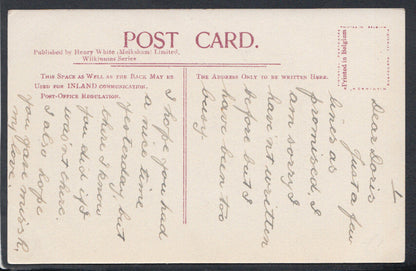 POST CARD.
Published by Henry White (Melksham) Limited,
Wilkinsons Series
Printed in Belgium
THIS SPACE AS WELL AS THE BACK MAY BE
USED FOR INLAND COMMUNICATION.
POST-OFFICE REGULATION.
THE ADDRESS ONLY TO BE WRITTEN HERE.
1
Dear Doris
Just a few
lines as
promised. I
am sorry I
have nt written
before but I
have been too
busy.
I hope you had
a nice time
yesterday, but
then I know
you did if I
wasn't there.
I also hope
you gave miss R.
my love.